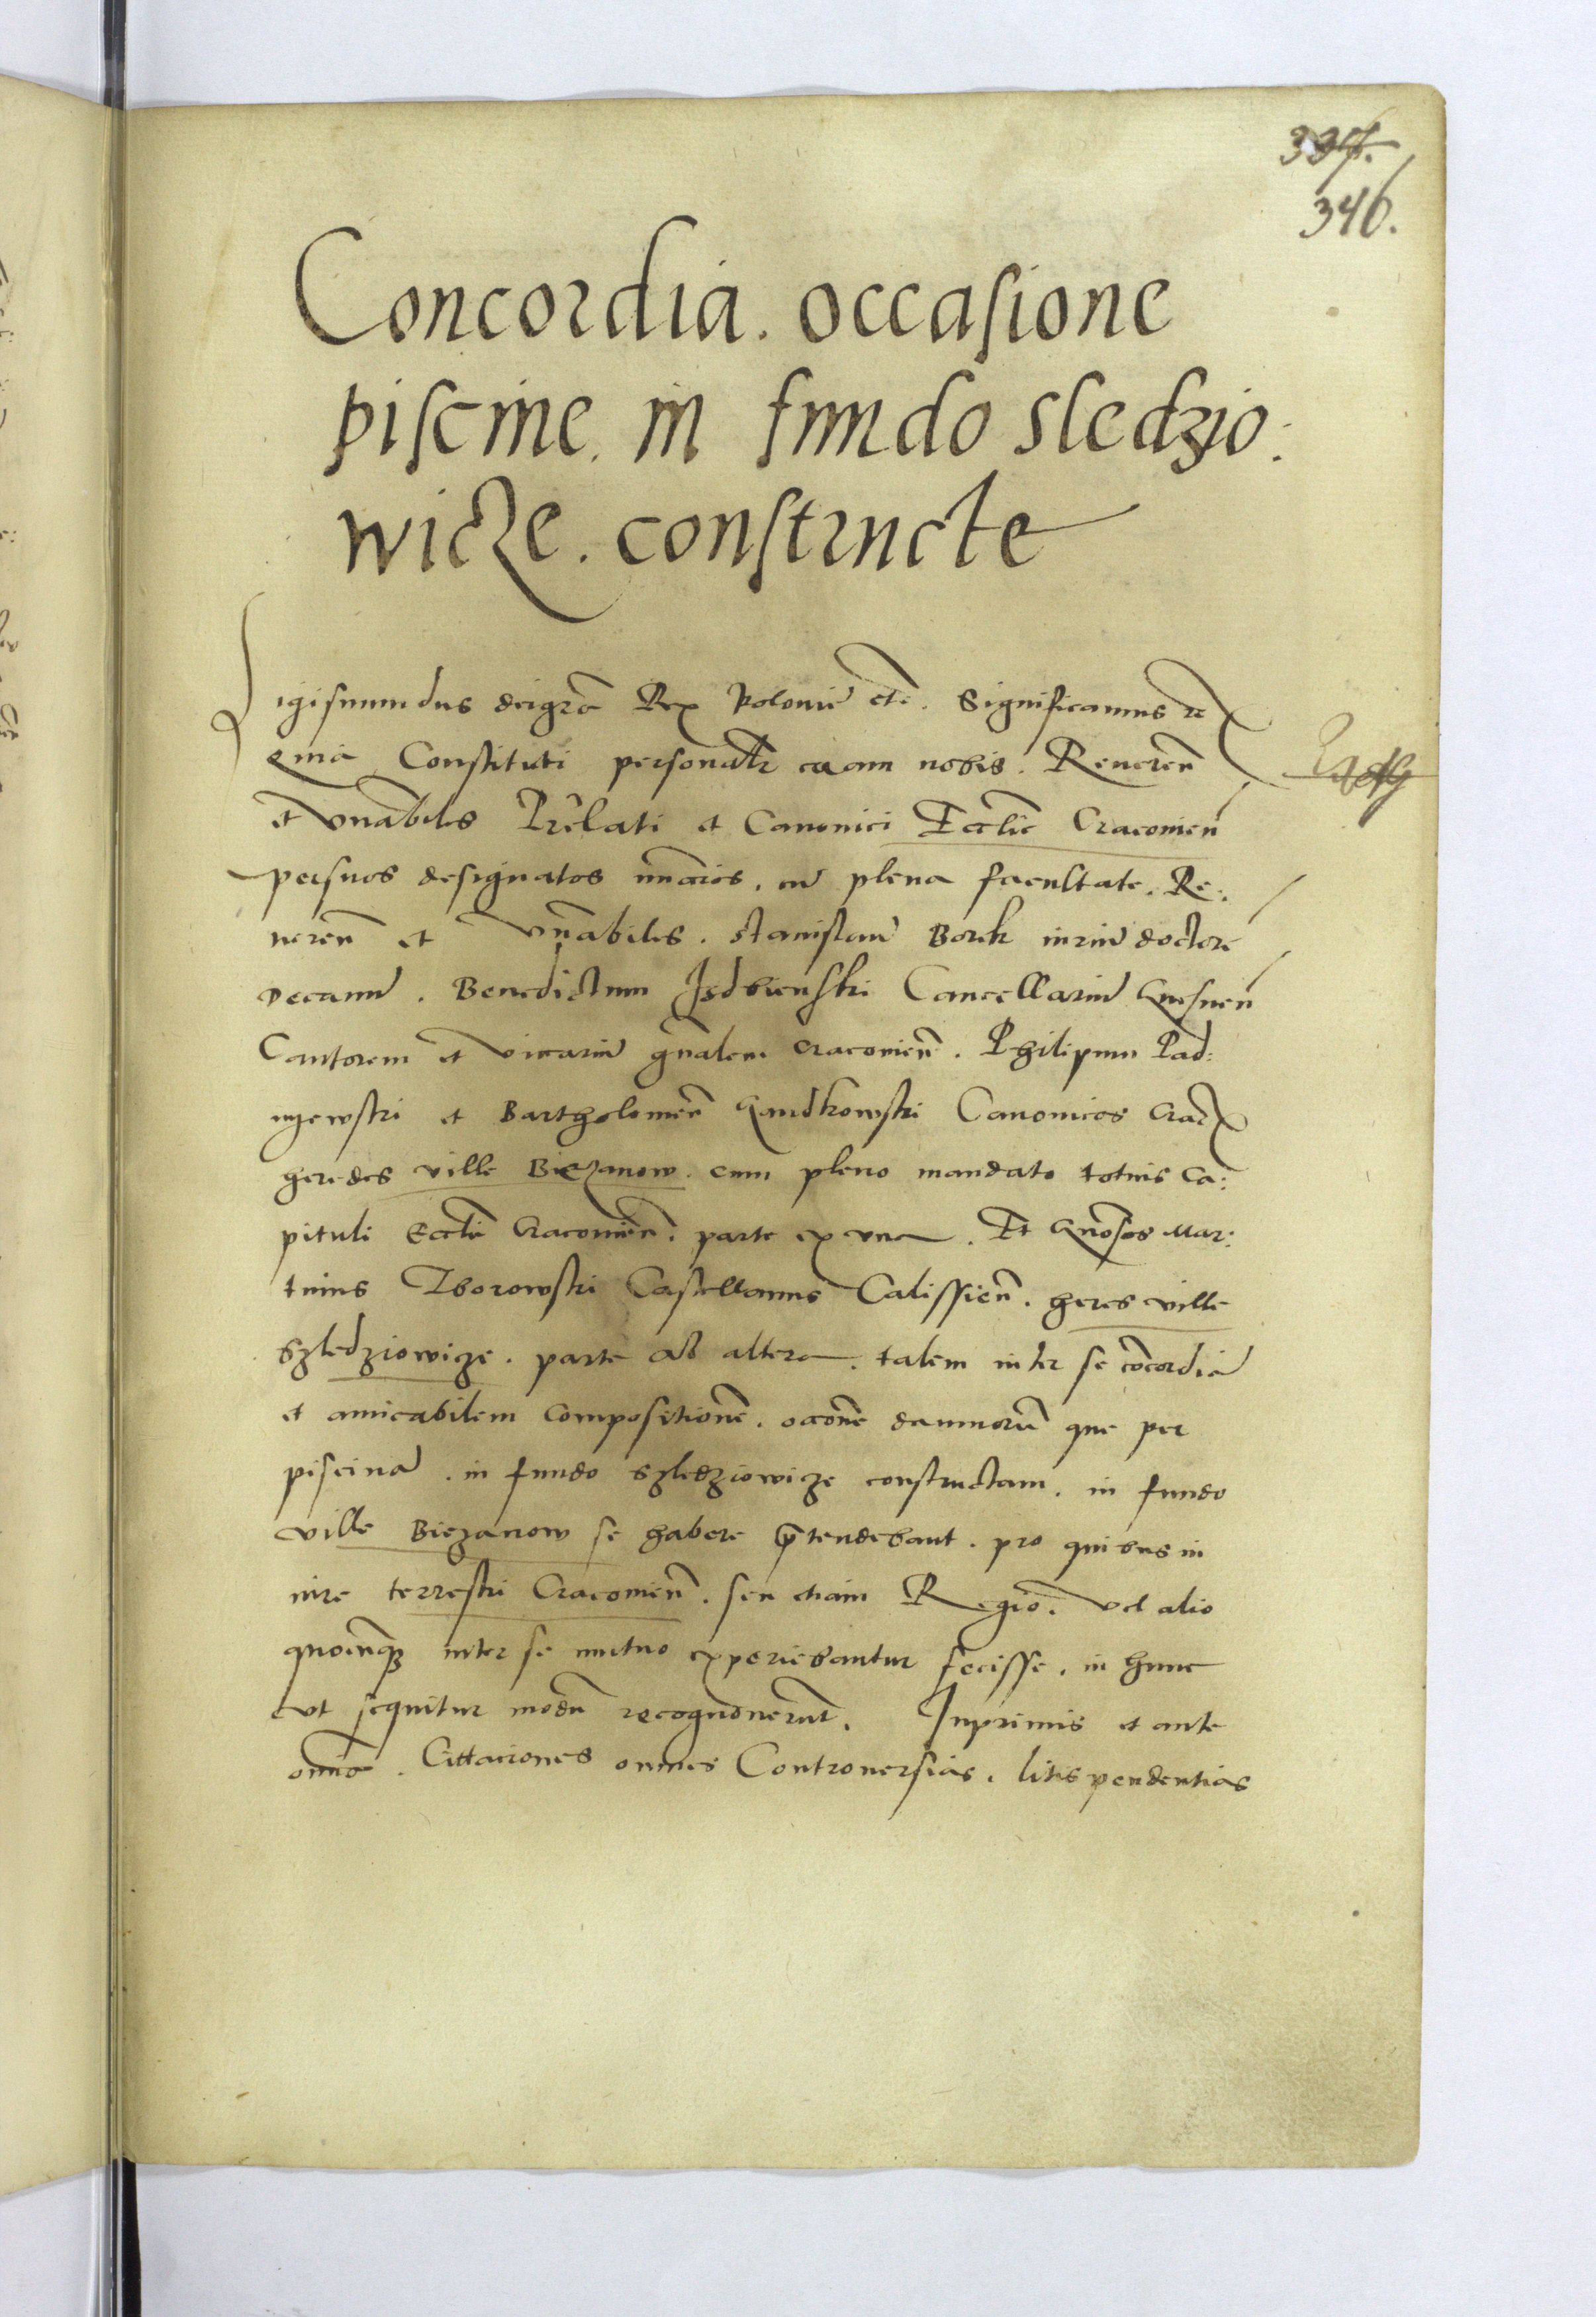 337.
346.
Concordia. occasione
piscine. in fundo sledzio:
wicze. constructe
Sigismundus dei grã Rex Polonie etc. Significamus te
qui͂a Constituti personalr coram nobis. Reueren̄
et vn̄abiles Prēlati et Canonici Ecclīe Cracouien̄
per suos designatos nunctios. cū plena facultate. Re:
ueren̄ et vn̄abiles. Stanislaū Borek iuriū doctorē
Decanū. Benedictum Isdbienski Cancellariū Gnesnen̄
Cantorem et vicariū gn̄alem Cracouien̄. Philipum Pad:
nyewski et Bartholomeū Gandkowski Canonicos Crac̄
heredes ville Biezanow. cum pleno mandato totius Ca:
pituli Eccl̄ie Cracouien̄. parte ex vna. Et Gn̄osos Mar:
tinus Zborowski Castellanus Calissien̄. heres ville
Szledziowicze. parte ab altera. talem inter se cōcordiā
et amicabilem compositionē. occōne damnorū que per
piscinā. in fundo szledziowicze constructam. in fundo
ville Biezanow se habere p̄tendebant. pro quibus in
iure terrestri Cracouien̄. seu etiam Regio. vel alio
quocūqȝ inter se mutuo experiebantur fecisse. in hunc
vt sequitur modū recognouerūt. Inprimis et ante
om̄ia. Cittaciones omnes Controuersias. litis pendentias